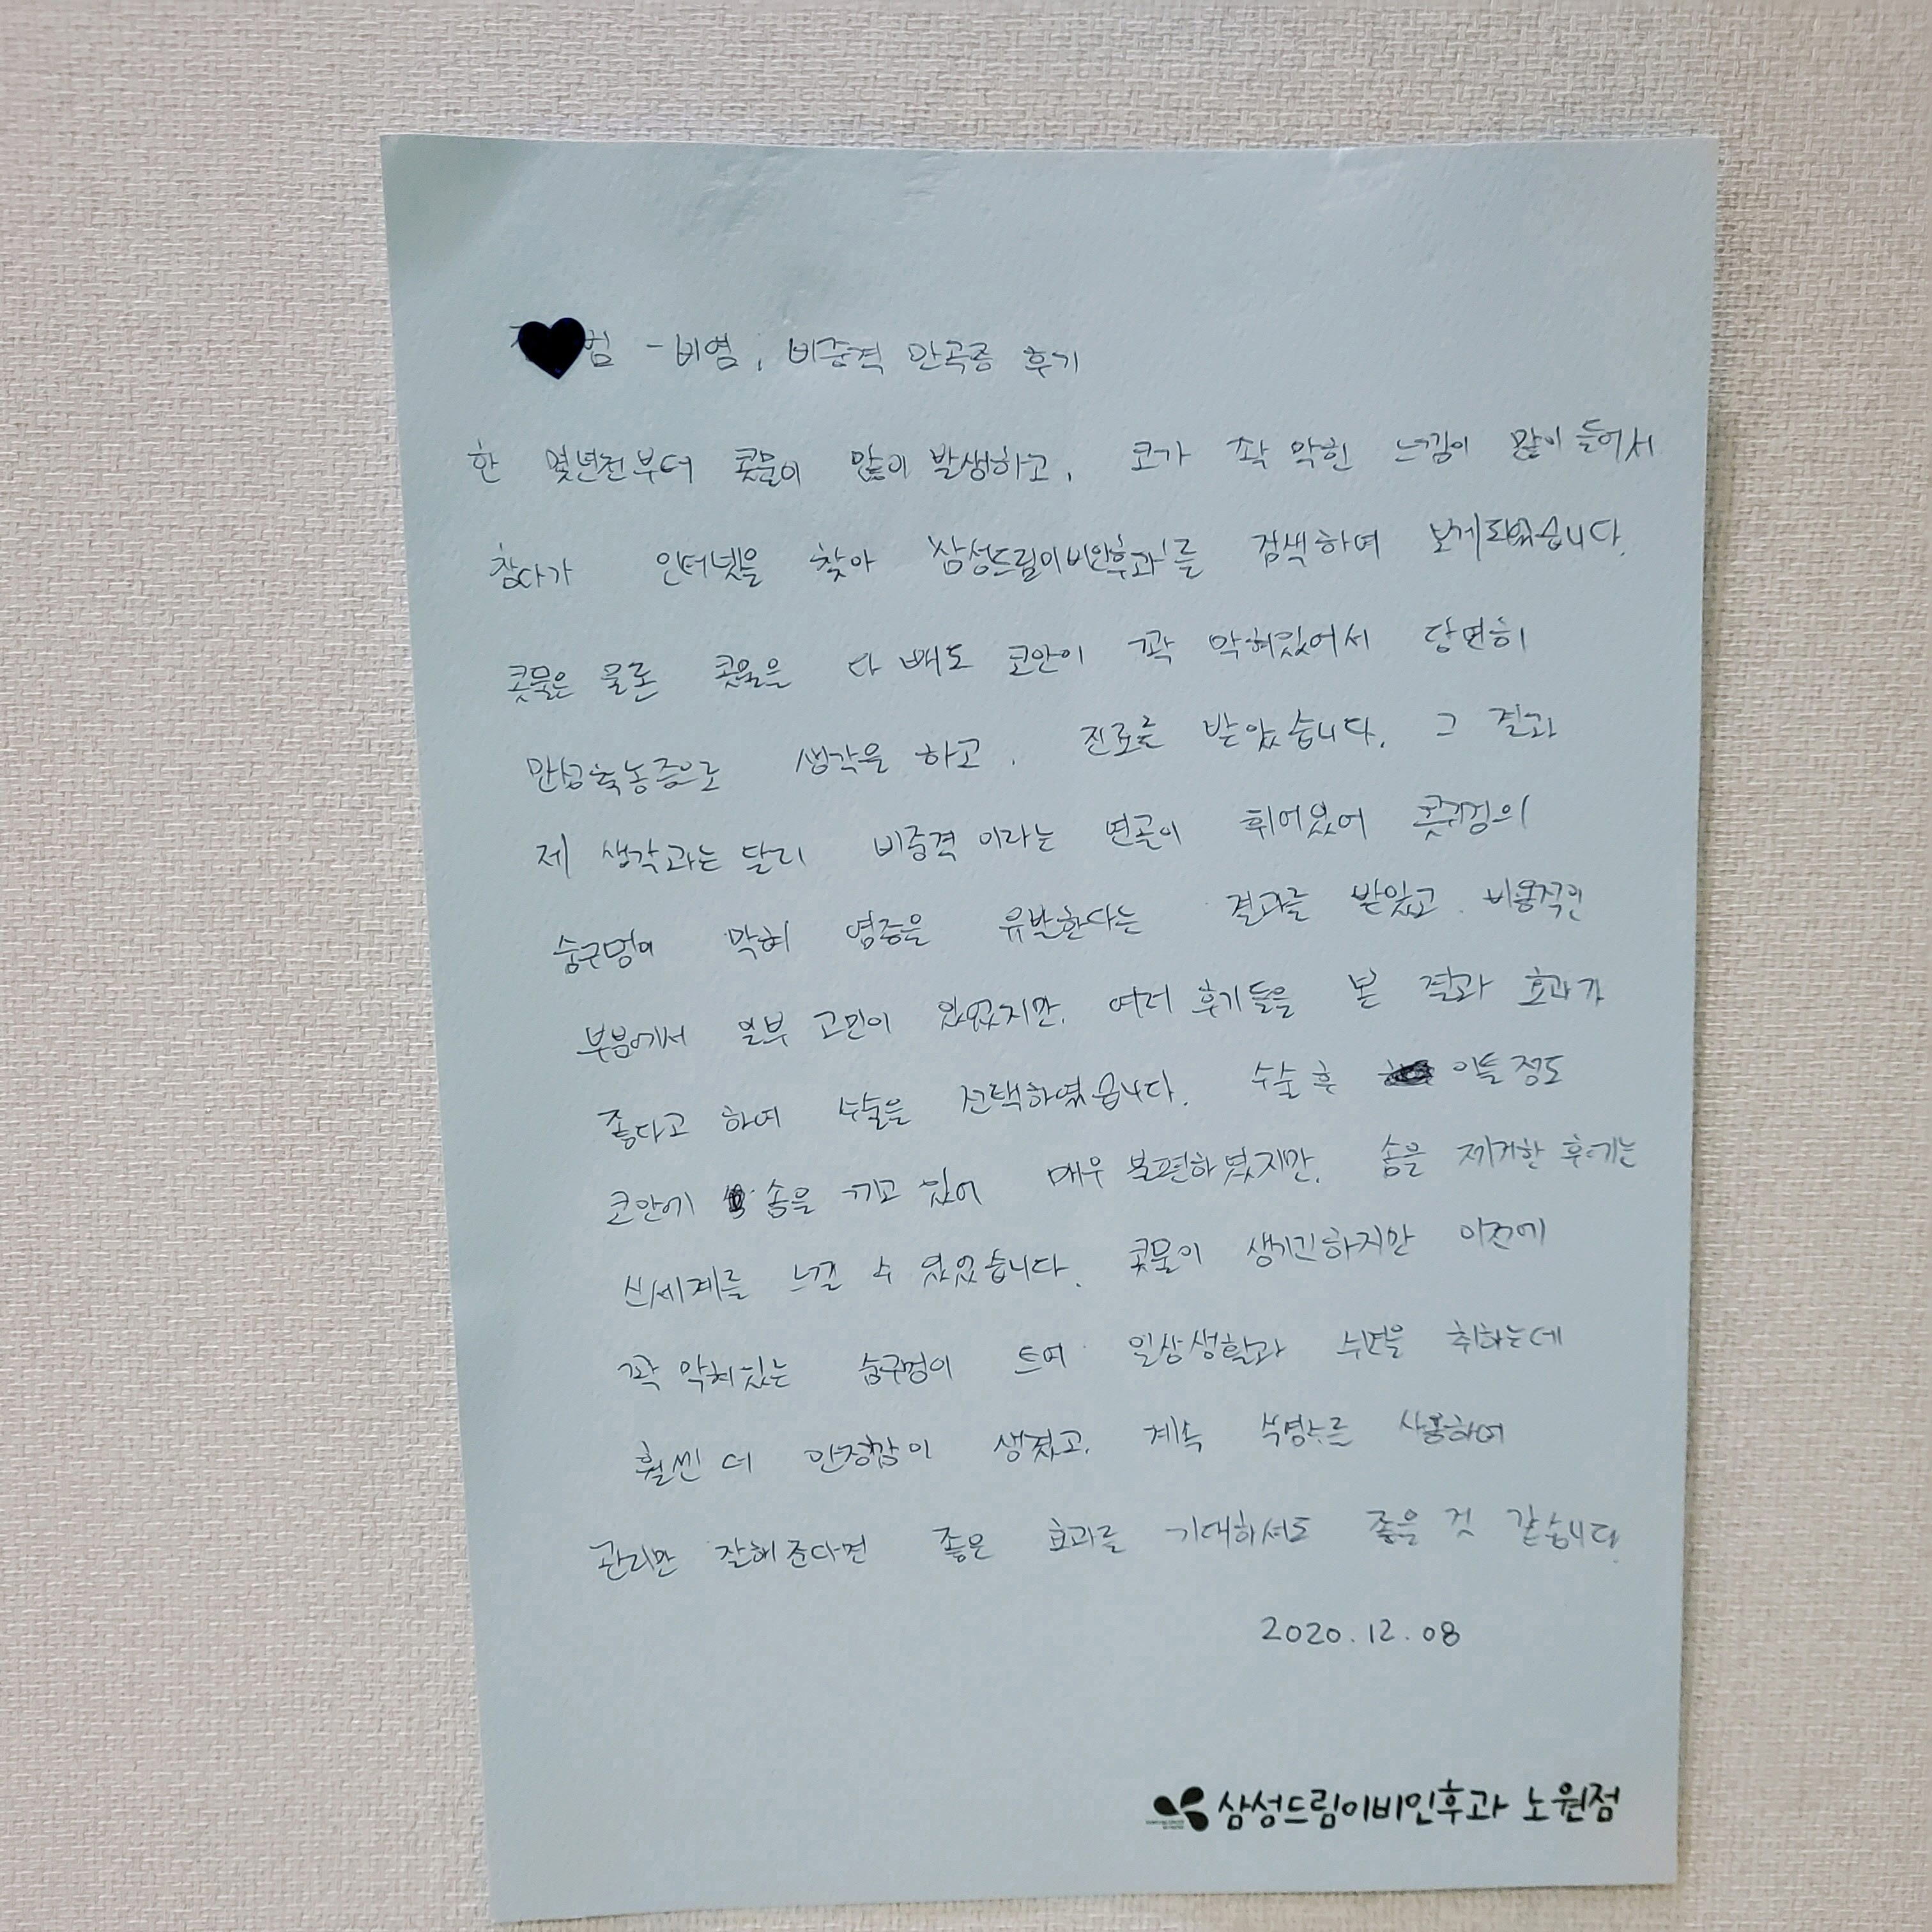 범 - 비염, 비중격 만곡증 후기
한 몇년전부터 콧물이 많이 발생하고, 코가 꽉 막힌 느낌이 많이 들어서
참다가 인터넷을 찾아 '삼성드림이비인후과'를 검색하여 보게되었습니다.
콧물은 물론 콧물을 다 빼도 코안이 꽉 막혀있어서 당연히
만성축농증으로 생각을 하고, 진료를 받았습니다. 그 결과
제 생각과는 달리 비중격이라는 연골이 휘어있어 콧구멍의
숨구멍이 막혀 염증을 유발한다는 결과를 받았고, 비용적인
부분에서 일부 고민이 있었지만, 여러 후기들을 본 결과 효과가
좋다고 하여 수술을 선택하였습니다. 수술 후 이틀정도
코안에 솜을 끼고 있어 매우 불편하였지만, 솜을 제거한 후에는
신세계를 느낄 수 있었습니다. 콧물이 생기긴하지만 이전에
꽉 막혀있는 숨구멍이 트여 일상생활과 수면을 취하는데
훨씬 더 안정감이 생겼고, 계속 식염수를 사용하여
관리만 잘해준다면 좋은 효과를 기대하셔도 좋은 것 같습니다.
2020.12.08
삼성드림이비인후과 노원점